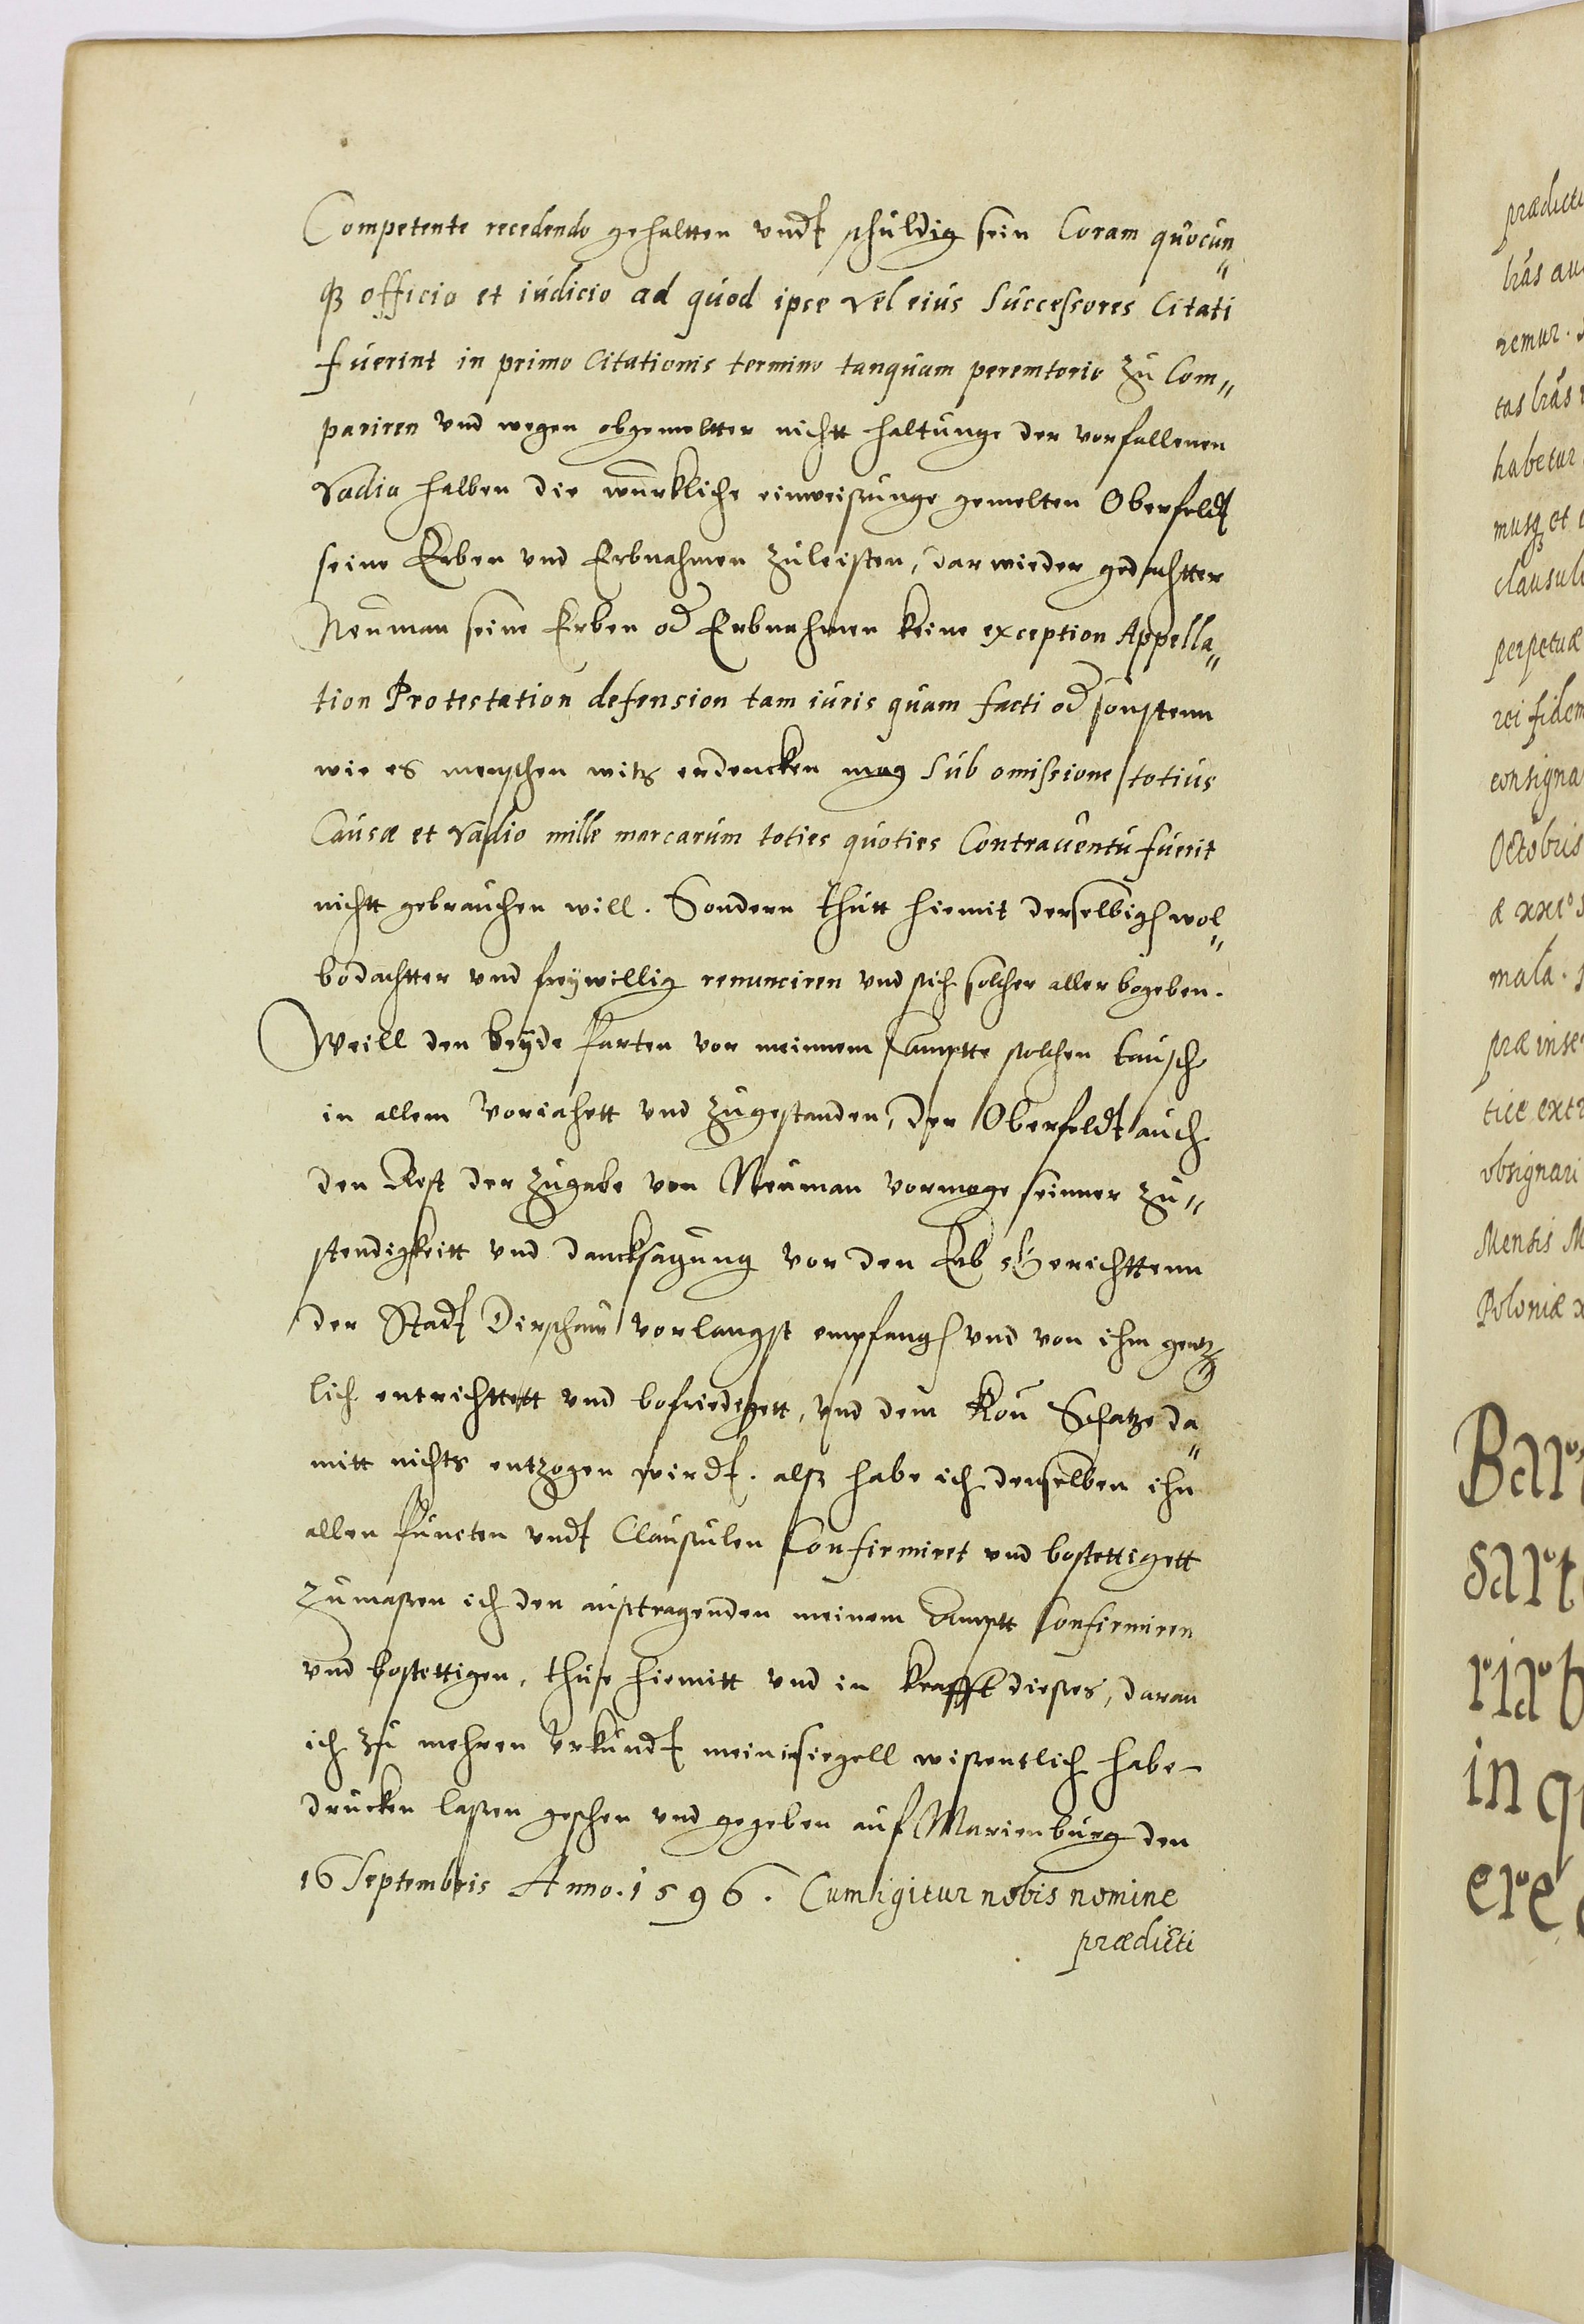 Competente recedendo gehaltten undt schuldig sein Coram quocun„
qз officio et iudicio ad quod ipse vel eius Successores Citati
fuerint in primo Citationis termino tanquam peremtorio zu Com„
pariren und wegen obgemeltter nichtt haltunge der verfallenen
Vadia halben die würkliche einweisunge gemelten Oberfeldt
seine Erben und Erbnahmen zuleisten, darwieder gedachtter
Neüman seine Erben od Erbnahmen keine exception Appella„
tion Protestation defension tam iuris quam facti od sonstenn
wie es menschen witz erdencken mag Sub omissione totius
Causæ et vadio mille marcarum toties quoties Contraventũ fuerit
nichtt gebrauchen will. Sondern thutt hiemit derselbigen wol„
bedachtter und freÿwillig renunciren und sich solcher aller begeben.
Weill den beÿde parten vor meinem Amptte solchen tausch
in allem voriahett und zugestanden, der Oberfeldt auch
den Rest der zugabe von Neuman vermoge seinner zu„
stendigkeitt und dancksagung vor den Erb Gerichttenn
der Stadt Dirschaw vorlangst empfangen und von ihm gentz„
lich entrichttett und befriedegett, und dem Kön Schatze da„
mitt nichts entzogen wirdt. alß habe ich denselben ihn
allen puncten undt Clausulen Confirmiret und bestettigett
zumaßen ich den aufftragenden meinem Amptt Confirmiren
und bestettigen, thuse hiemitt und in krafft dieses, daran
ich zu mehren Urkundt mein insiegell wißentlich habe
drucken laßen geschen und gegeben auf Marienburg den
16 Septembris Anno. 1596. Cum igitur nobis nomine
prædicti
prædicti
remur.
habetur
clausul
perpetuæ
rei fidem
consigna
Octobris
præ inse
obsignari
Mensis M
Poloniæ x
Bar
sart
in q
ere